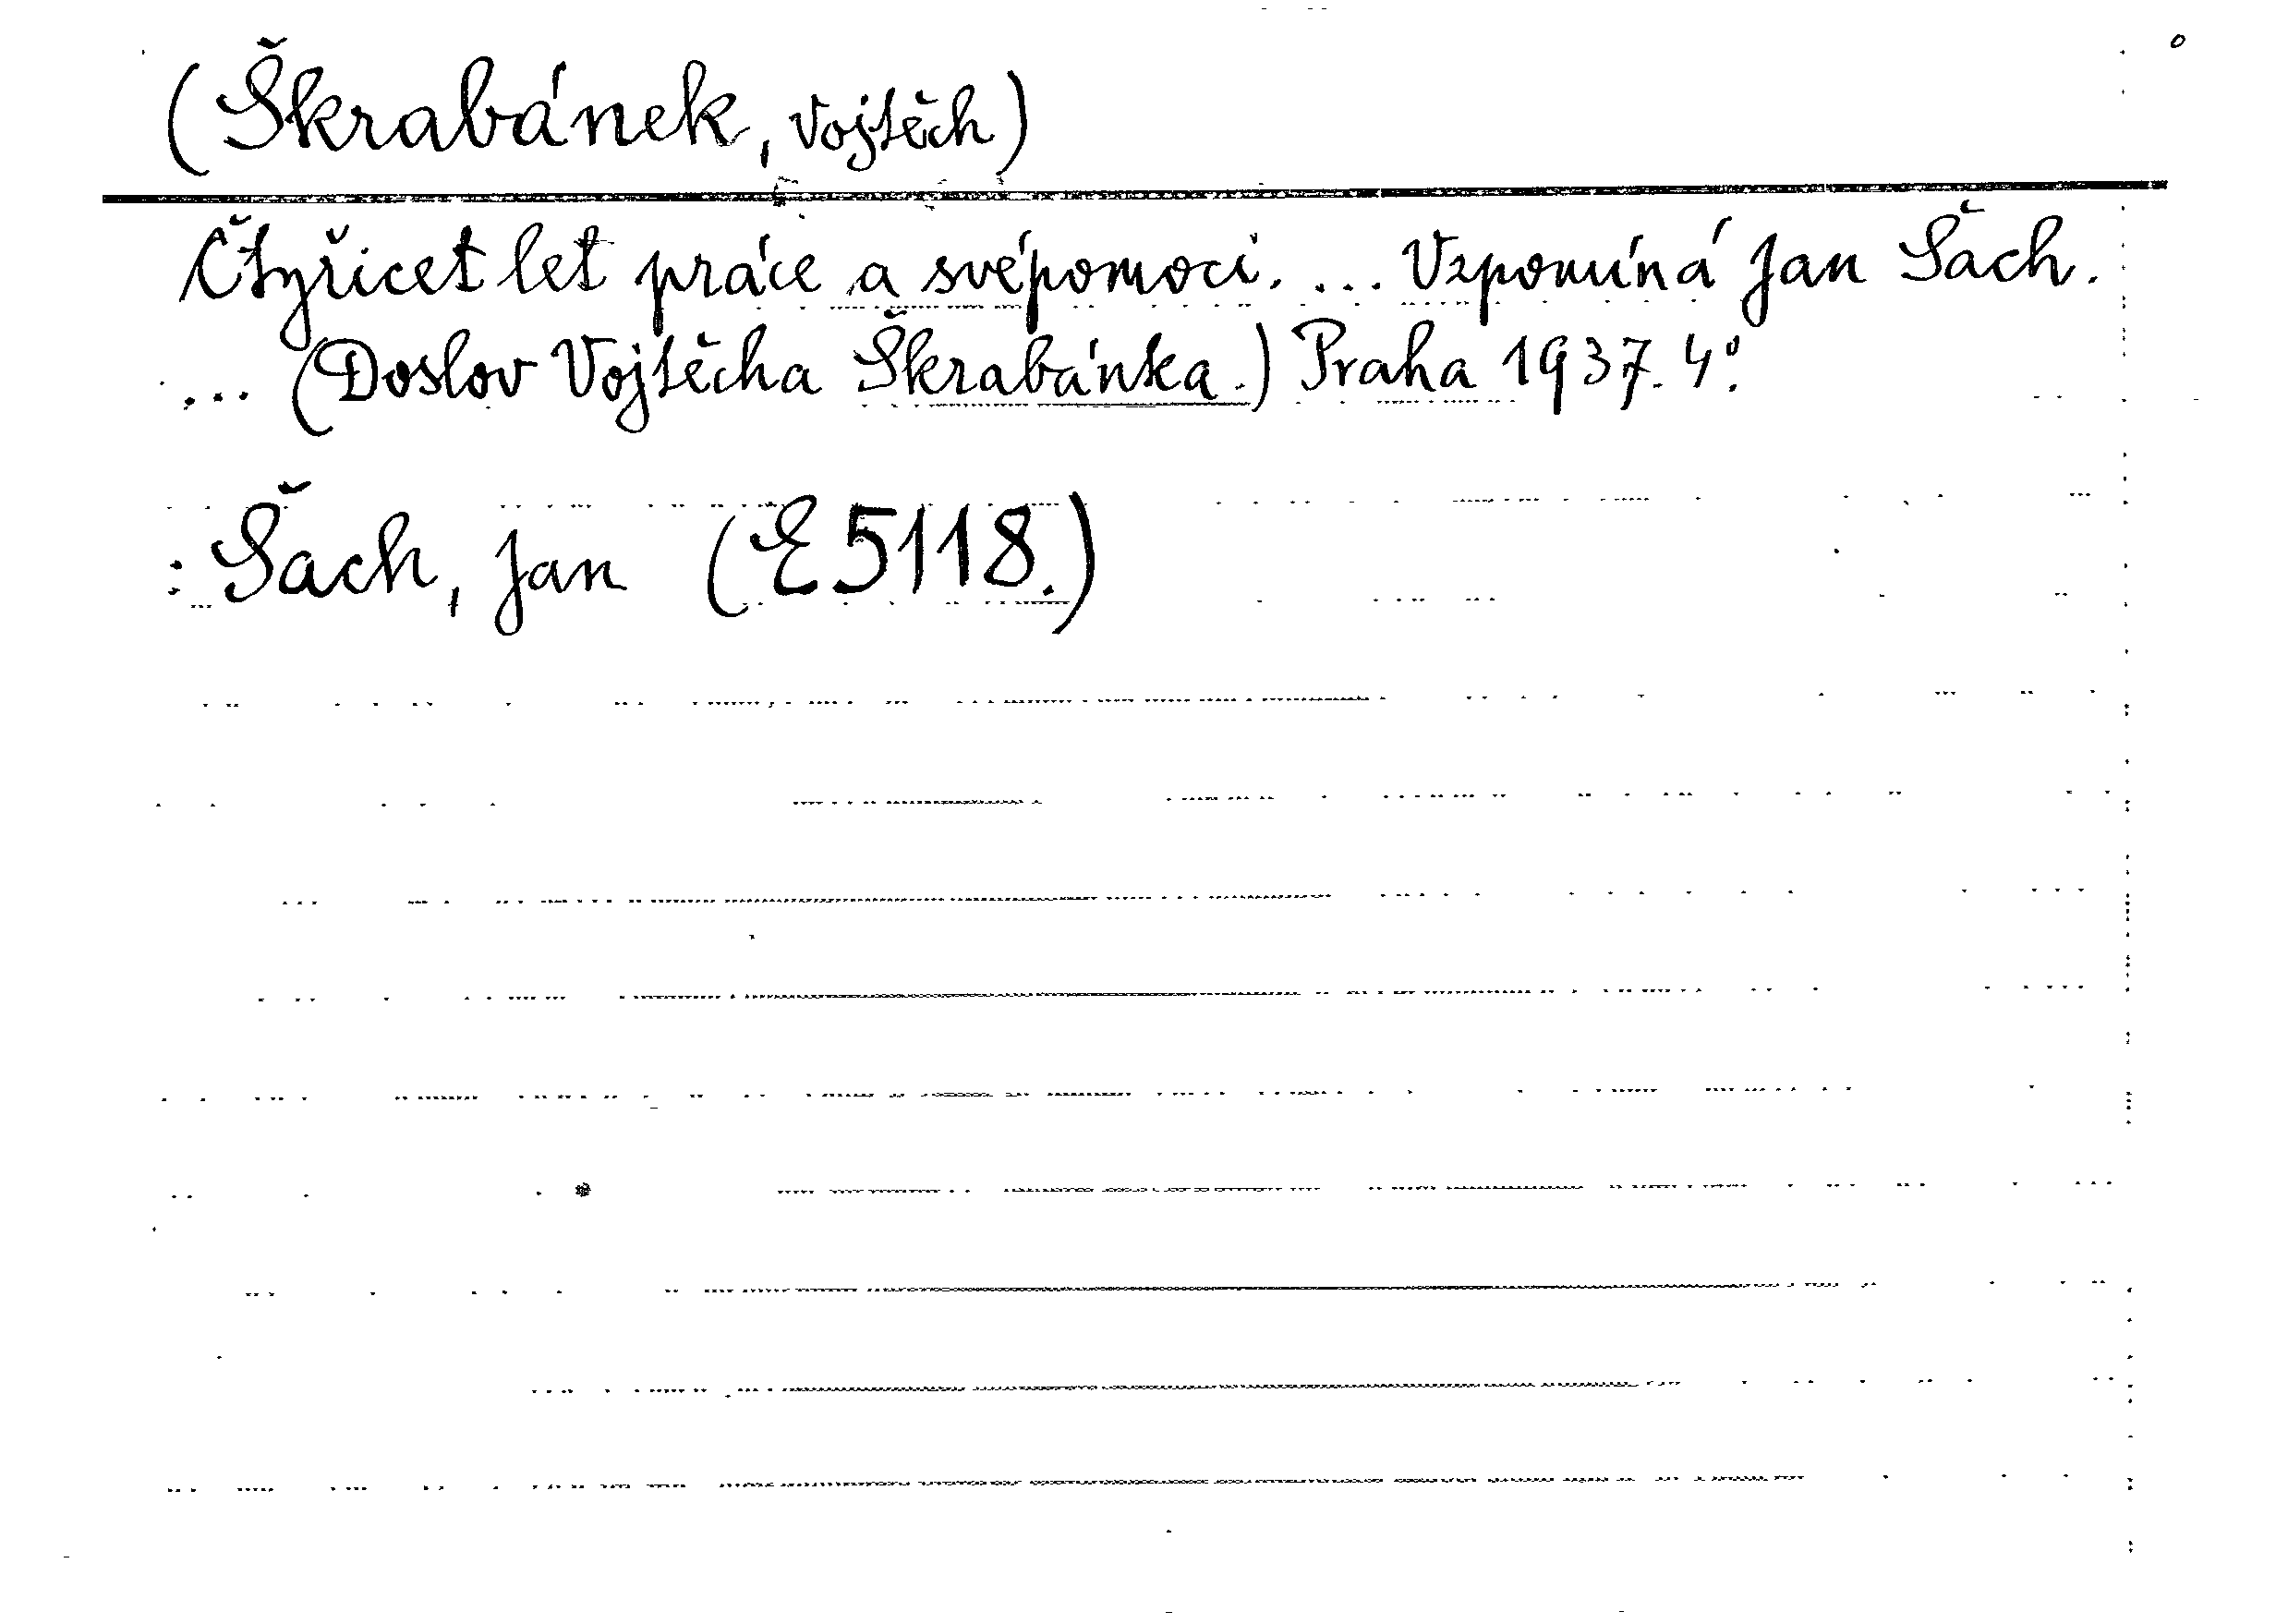 (Škrabánek, Vojtěch)
Čtyřicet let práce a svépomoci. ... Vzpomíná Jan Šach.
... (Doslov Vojtěcha Škrabánka.) Praha 1937. 4°.
: Šach, Jan (E 5118.)